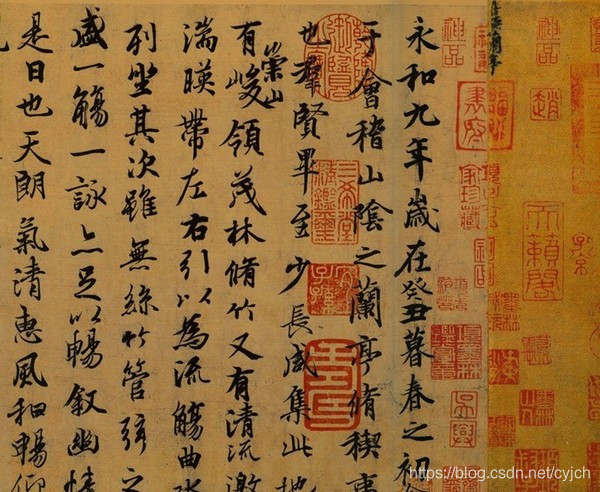 神品
天籟閣
神品
永和九年歲在癸丑暮春之初
于會稽山陰之蘭亭脩稧事
也羣賢畢至少長咸集此地
有崇山峻領茂林脩竹又有清流激
湍暎帶左右引以為流觴曲水
列坐其次雖無絲竹管弦之
盛一觴一詠亦足以暢敘幽情
是日也天朗氣清惠風和暢仰
三希堂精鑑璽
https://blog.csdn.net/cyjch